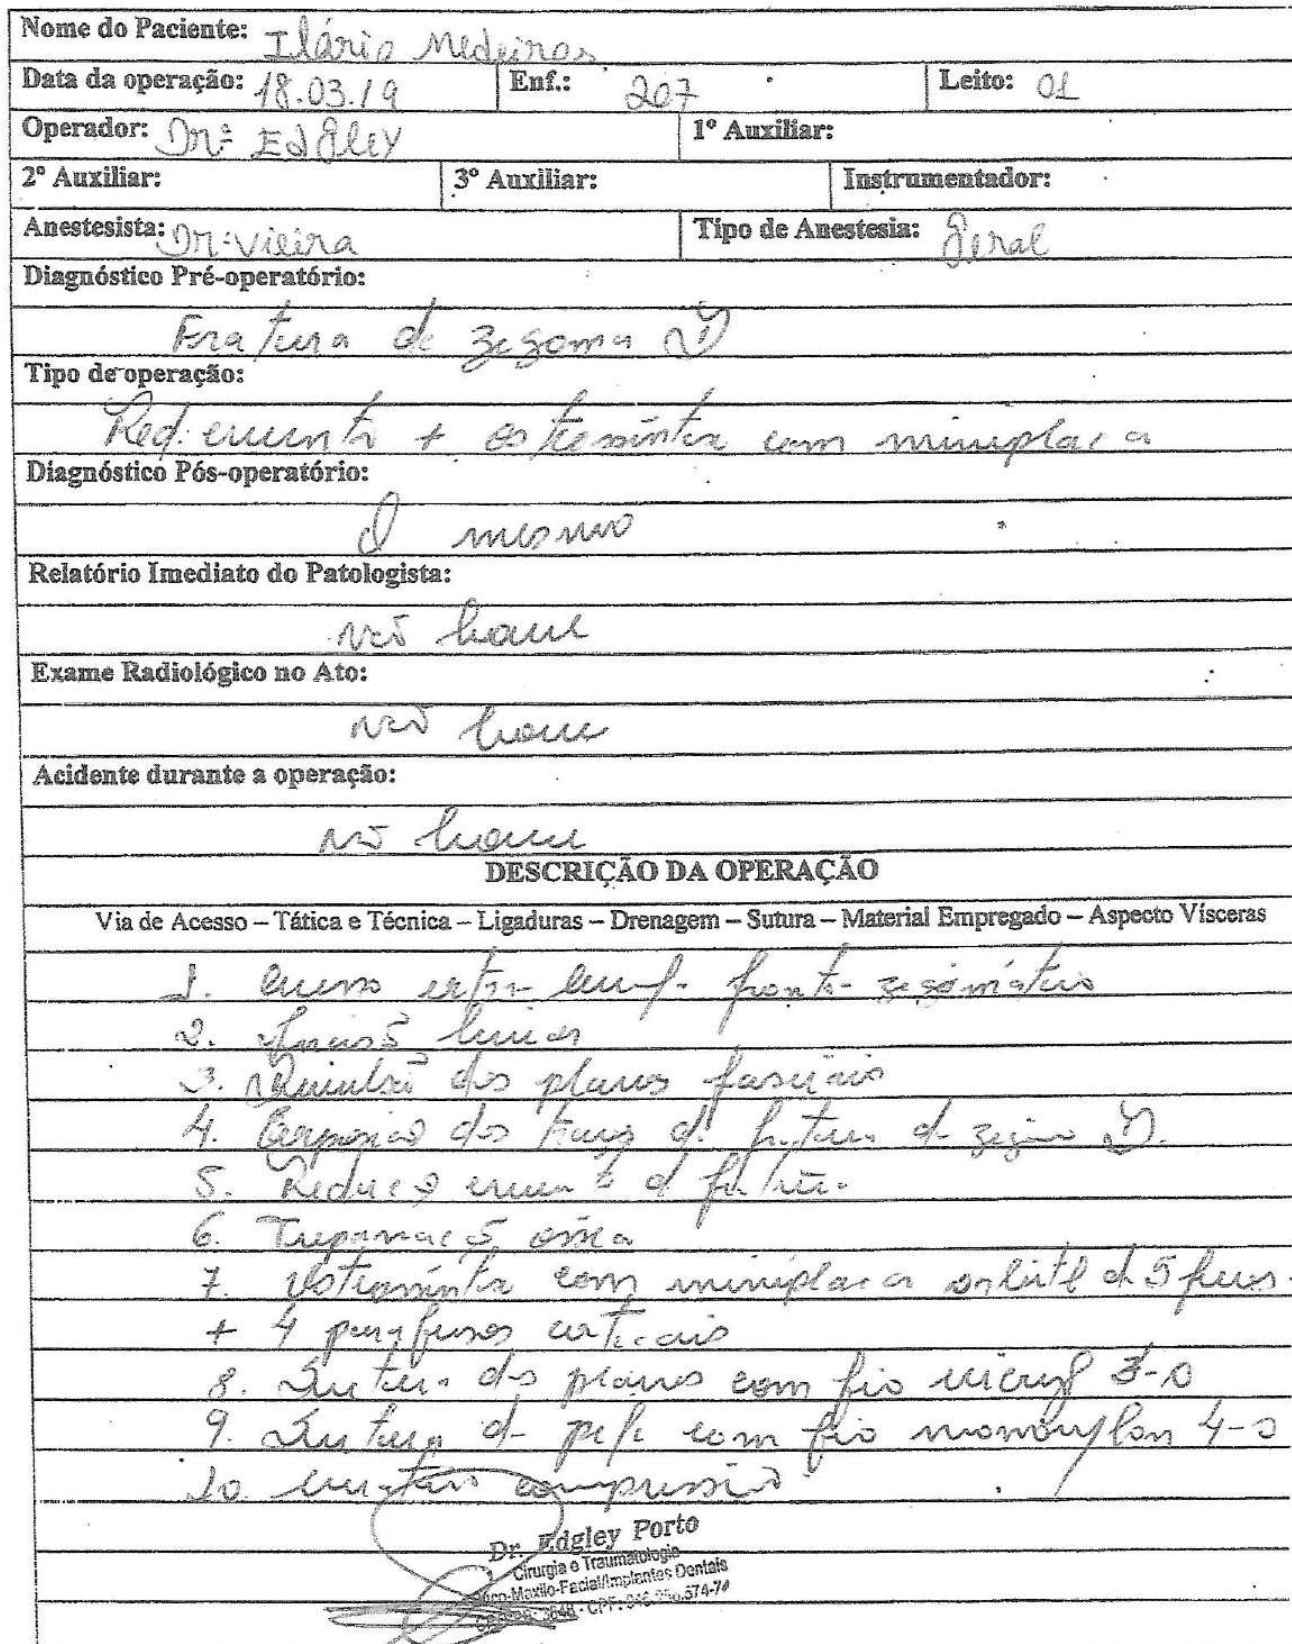 Nome do Paciente: Ilário Medeiros
Data da operação: 18.03.19 Enf.: 207 Leito: 01
Operador: Drº Edgley 1º Auxiliar:
2º Auxiliar: 3º Auxiliar: Instrumentador:
Anestesista: Drº Vieira Tipo de Anestesia: Geral
Diagnóstico Pré-operatório:
Fratura de zigoma D
Tipo de operação:
Red. cruenta + osteossíntese com miniplaca
Diagnóstico Pós-operatório:
O mesmo
Relatório Imediato do Patologista:
não houve
Exame Radiológico no Ato:
não houve
Acidente durante a operação:
não houve
DESCRIÇÃO DA OPERAÇÃO
Via de Acesso – Tática e Técnica – Ligaduras – Drenagem – Sutura – Material Empregado – Aspecto Vísceras
1. fronto-zigomático
2. Incisão linear
3. Divulsão dos planos
4. Exposição dos traços de fratura de zigoma D.
5. Redução cruenta d fratura
6. Trepanação óssea
7. Osteossíntese com miniplaca orbital de 5 furos
+ 4 parafusos corticais
8. Sutura dos planos com fio vicryl 3-0
9. Sutura d pele com fio mononylon 4-0
10. curativo compressivo
Dr. Edgley Porto
Cirurgia e Traumatologia
Buco-Maxilo-Facial/Implantes Dentais